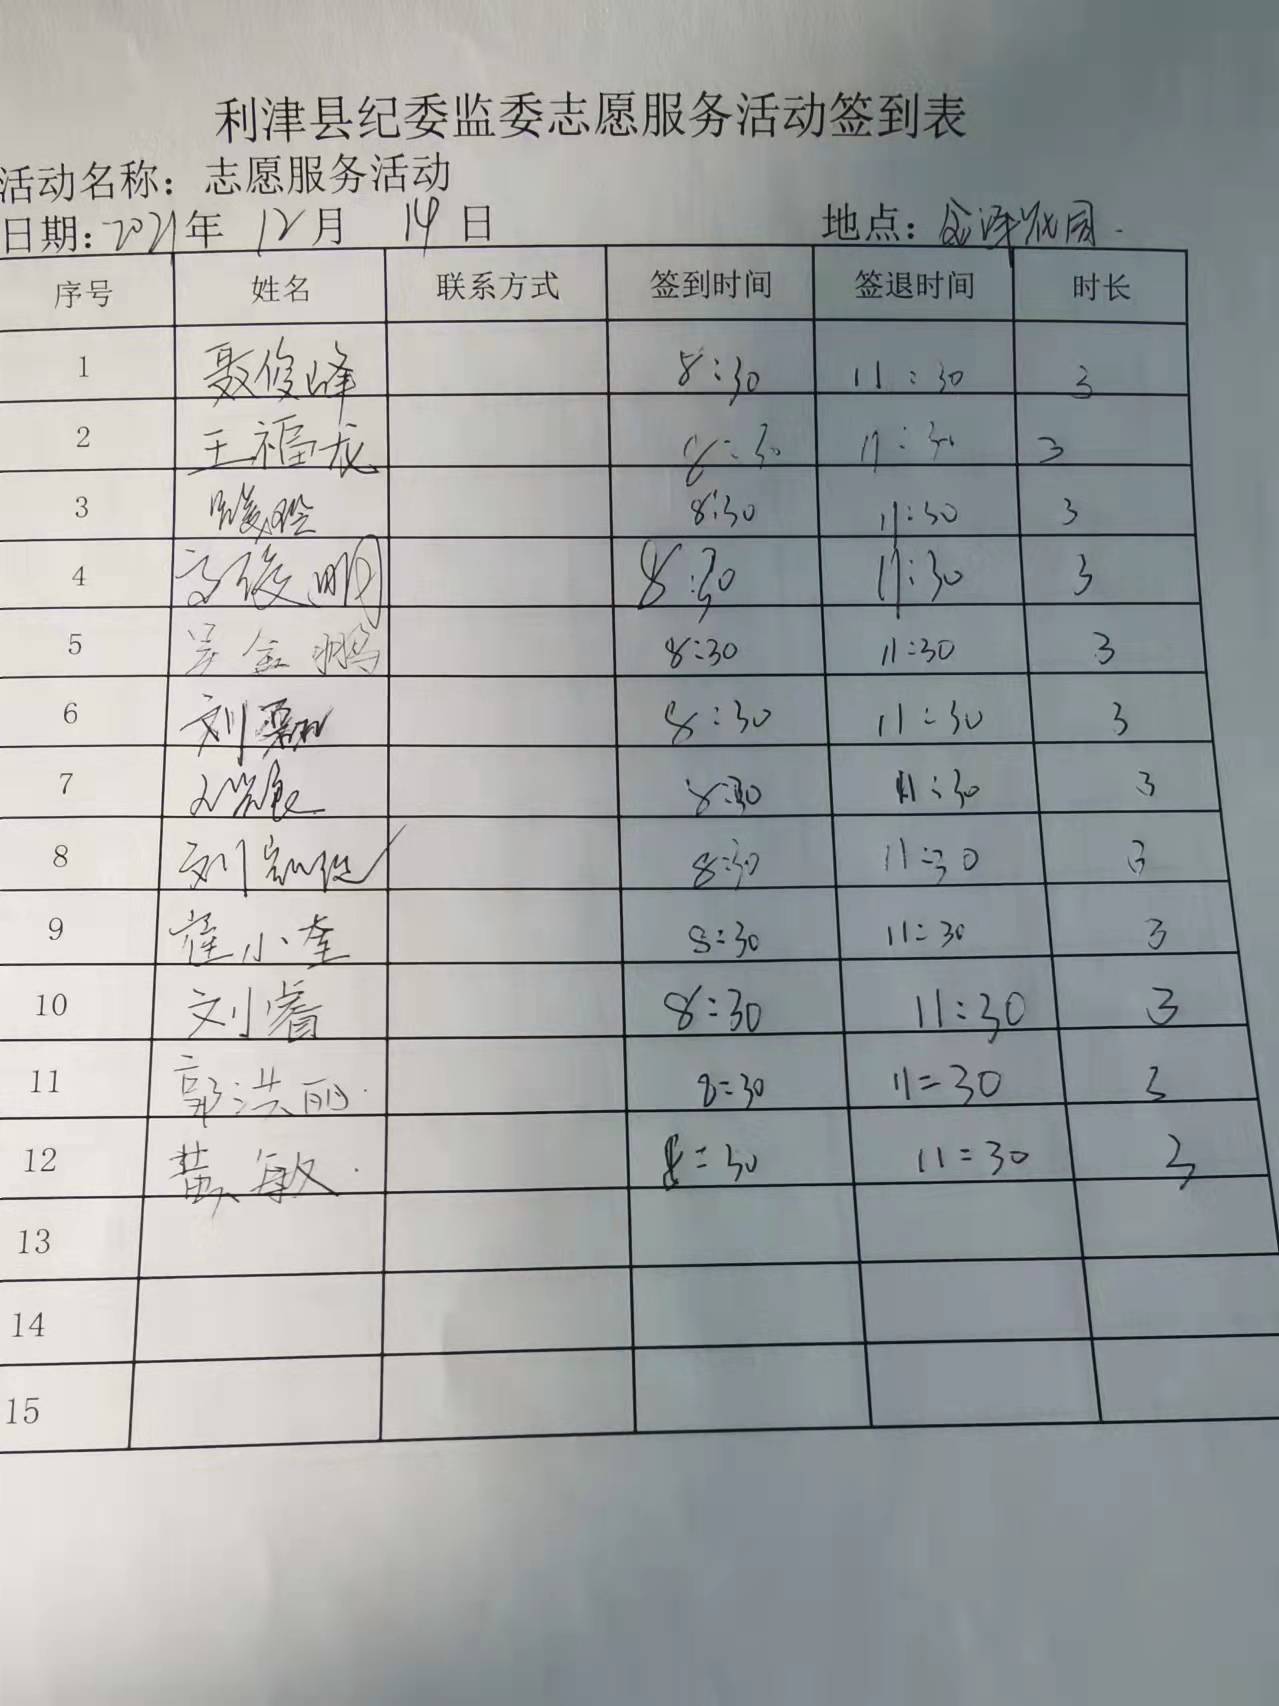 利津县纪委监委志愿服务活动签到表
活动名称：志愿服务活动
日期：2021年 12月 14日 地点：
序号 姓名 联系方式 签到时间 签退时间 时长
1 聂俊峰 8:30 11:30 3
2 王福龙 8:30 11:30 3
3 8:30 11:30 3
4 高俊明 8:30 11:30 3
5 吴金鹏 8:30 11:30 3
6 刘 8:30 11:30 3
7 8:30 11:30 3
8 刘 8:30 11:30 3
9 崔小奎 8:30 11:30 3
10 刘睿 8:30 11:30 3
11 郭洪丽 8:30 11:30 3
12 黄敏 8:30 11:30 3
13
14
15